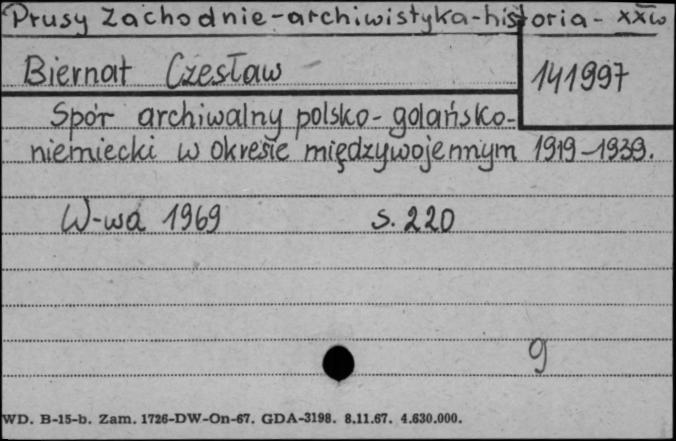 Prusy Zachodnie-archiwistyka-historia- XXw
Biernat Czesław
141997
Spór archiwalny polsko-gdańsko-
niemiecki w okresie międzywojennym 1919-1939.
W-wa 1969 s. 220
g
WD. B-15-b. Zam. 1726-DW-On-67. GDA-3198. 8.11.67. 4.630.000.